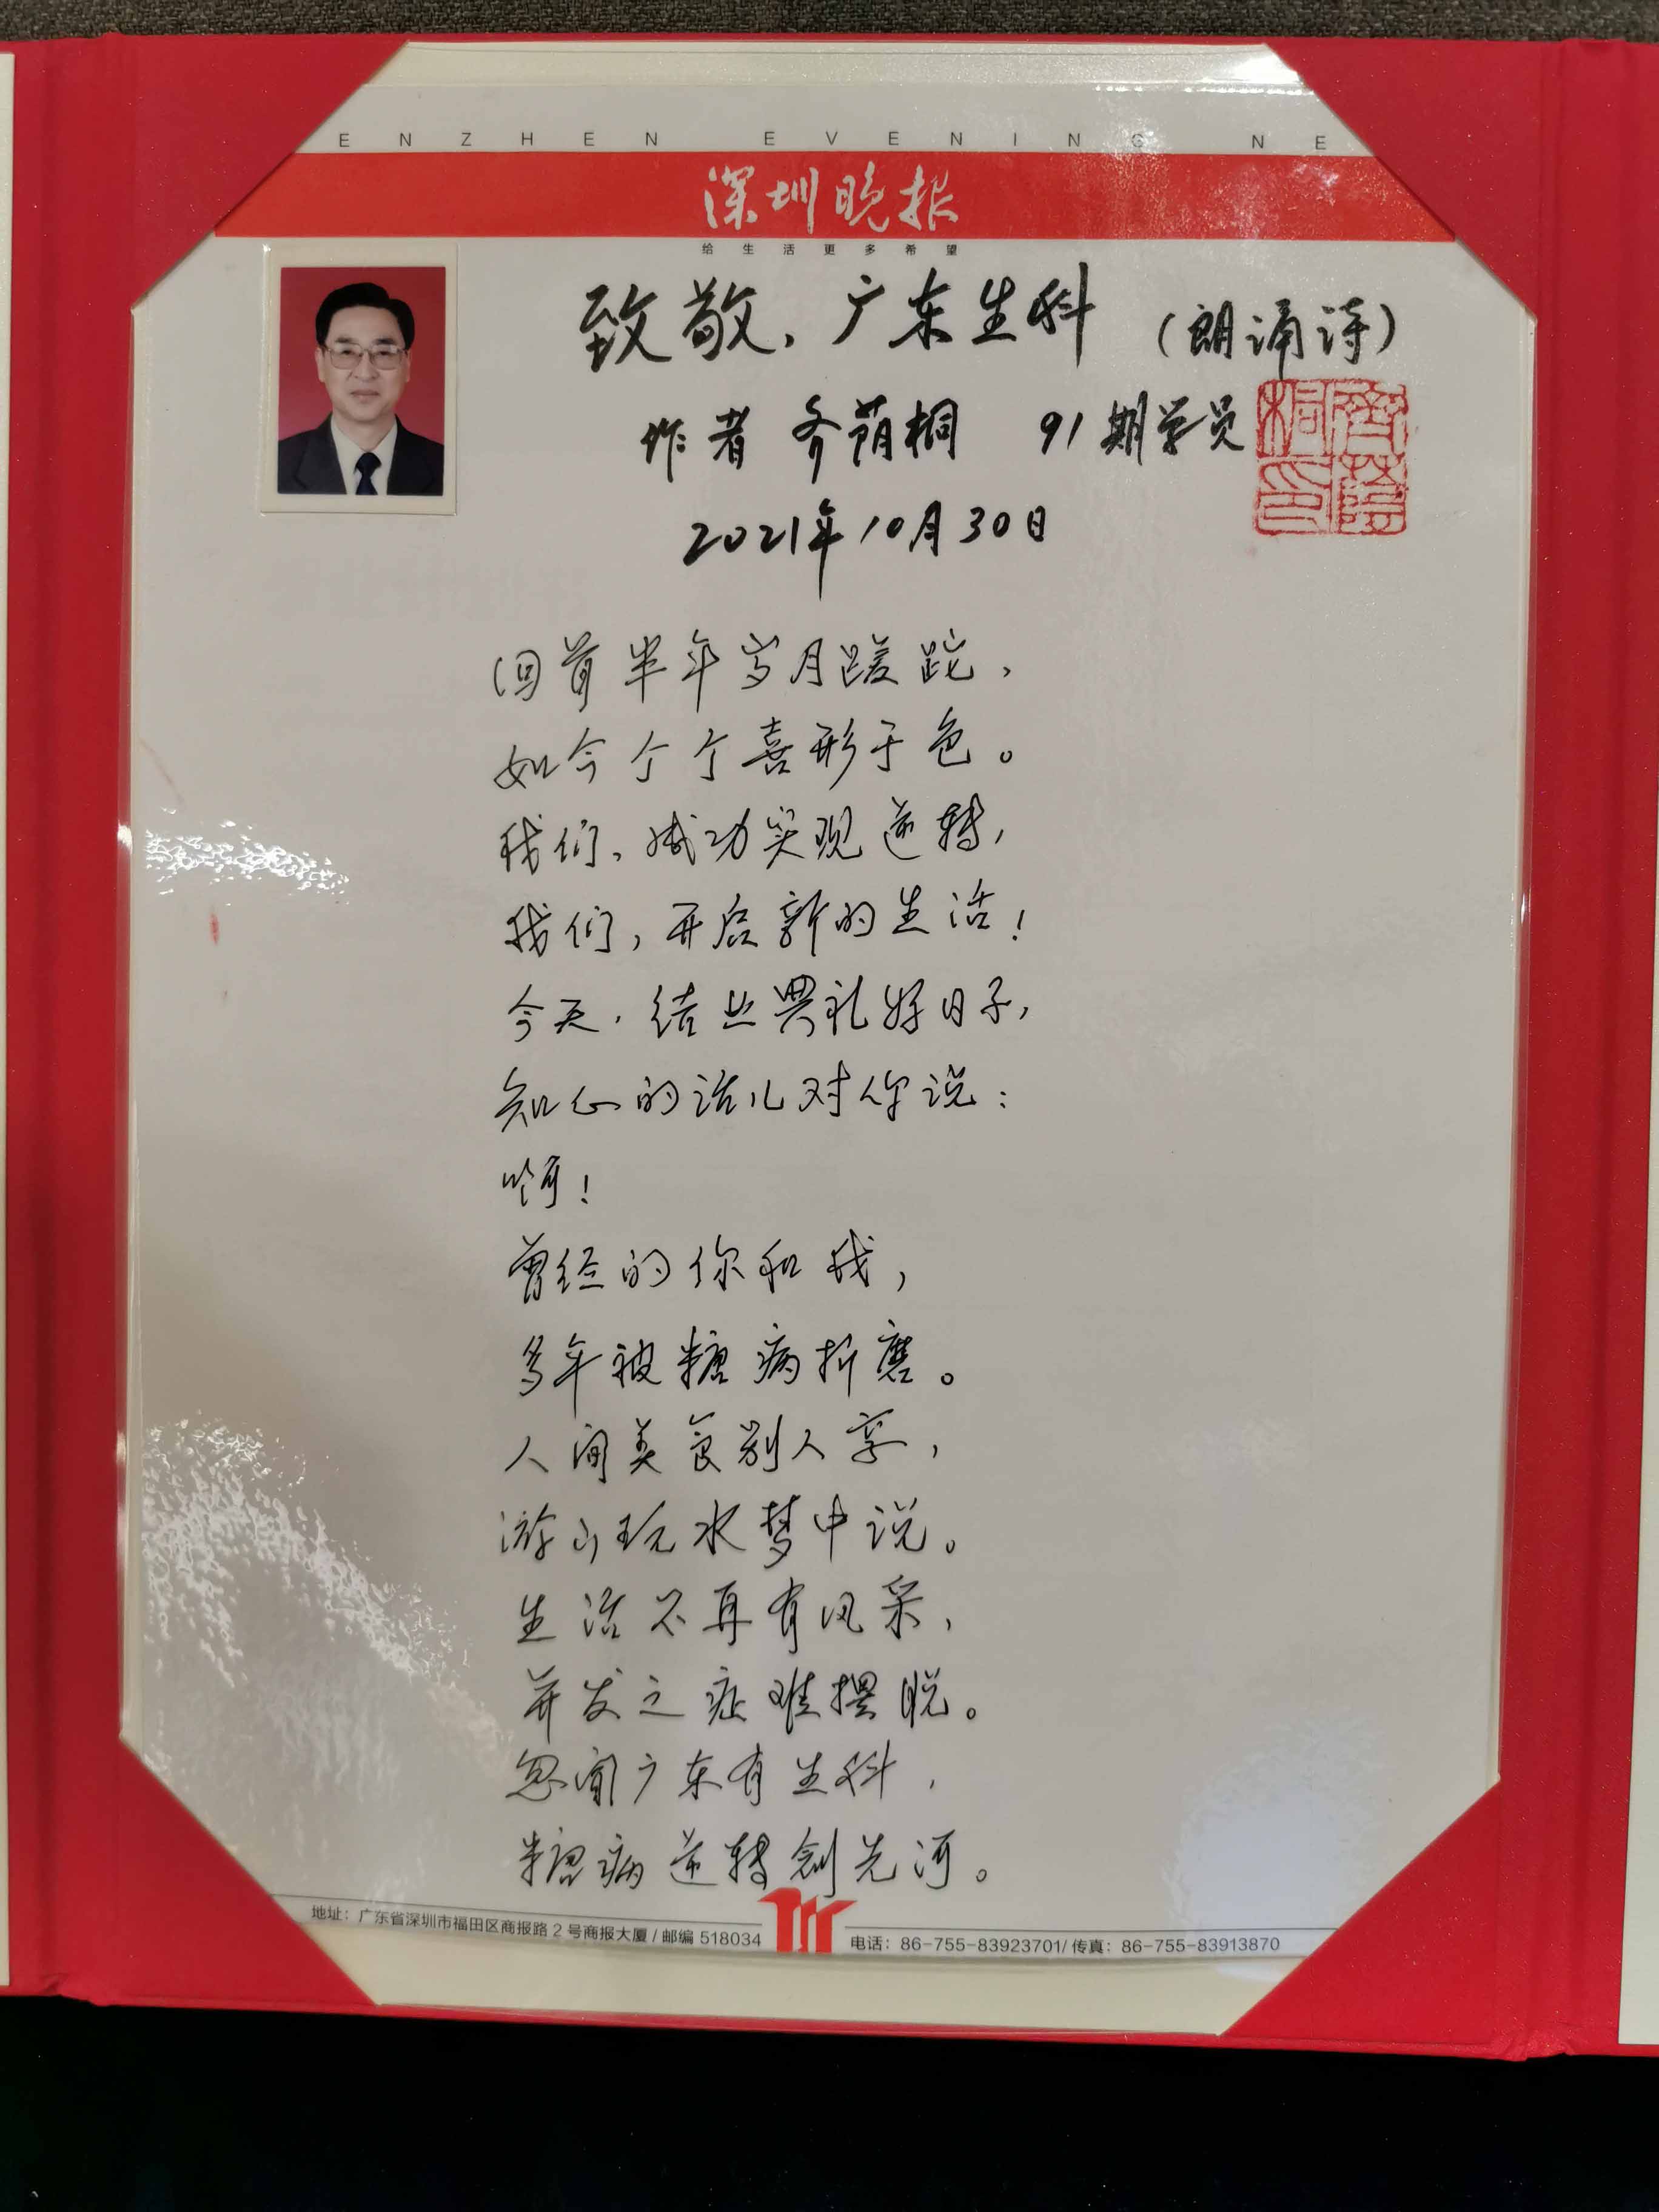 ENZHEN EVENING NE
深圳晚报
给生活更多希望
致敬、广东生科 (朗诵诗)
作者 齐荫桐 91期学员
齊蔭桐印
2021年10月30日
回首半年岁月蹉跎，
如今个个喜形于色。
我们，成功实现逆转，
我们，开启新的生活！
今天，结业典礼好日子，
知心的话儿对你说：
啊！
曾经的你和我，
多年被糖病折磨。
人间美食别人享，
游山玩水梦中说。
生活不再有风采，
并发之症难摆脱。
忽闻广东有生科，
糖病逆转创先河。
地址：广东省深圳市福田区商报路2号商报大厦/邮编 518034
电话：86-755-83923701/传真：86-755-83913870